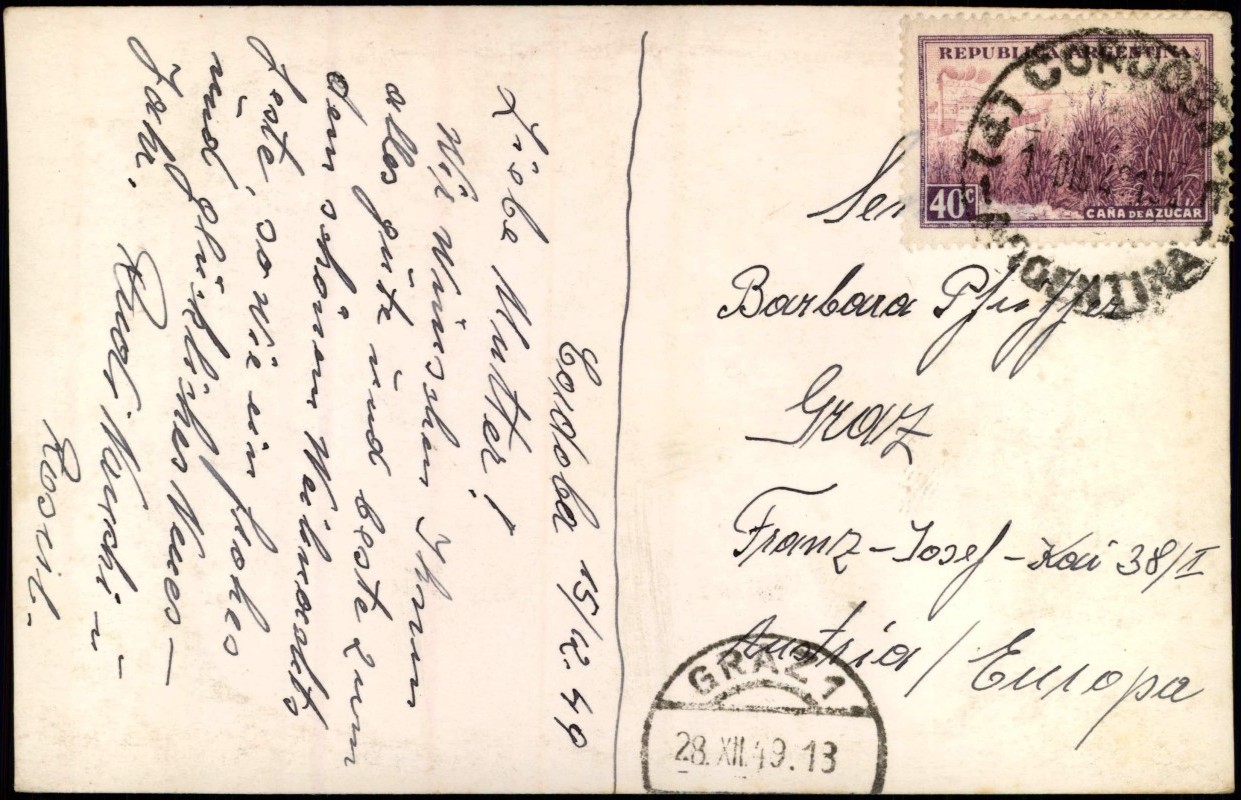 Cordoba 15/12.49
Liebe Mutter!
Wir wünschen Ihnen
alles gute und beste zum
dem schönen Weihnachts
feste, so wie ein frohes
und glückliches Neues–
Jahr. Rudi,
Rosil.
REPUBLICA ARGENTINA
40 C
CAÑA DE AZUCAR
(4) CORDOBA
ARGENTINA
Barbara Pfeiffer
Graz
Franz-Josef-Kai 38/I
Austria / Europa
GRAZ 1
28. XII. 49. 13